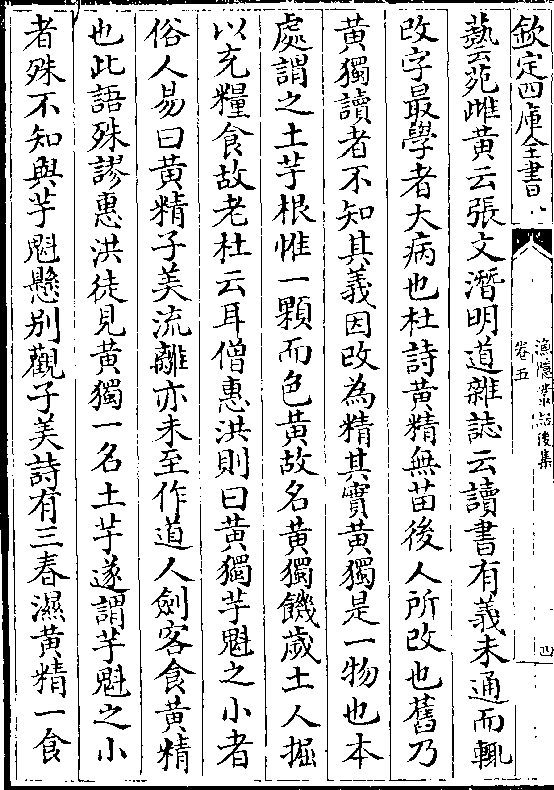 欽定四庫全書
漁隱叢話後集
卷五
四
藝苑雌黄云張文潛明道雜誌云讀書有義未通而輒
改字最學者大病也杜詩黄精無苗後人所改也舊乃
黄獨讀者不知其義因改為精其實黄獨是一物也本
處謂之土芋根惟一顆而色黄故名黄獨饑歲土人掘
以充糧食故老杜云耳僧惠洪則曰黄獨芋魁之小者
俗人易曰黄精子美流離亦未至作道人劍客食黄精
也此語殊謬惠洪徒見黄獨一名土芋遂謂芋魁之小
者殊不知與芋魁懸别觀子美詩有三春濕黄精一食